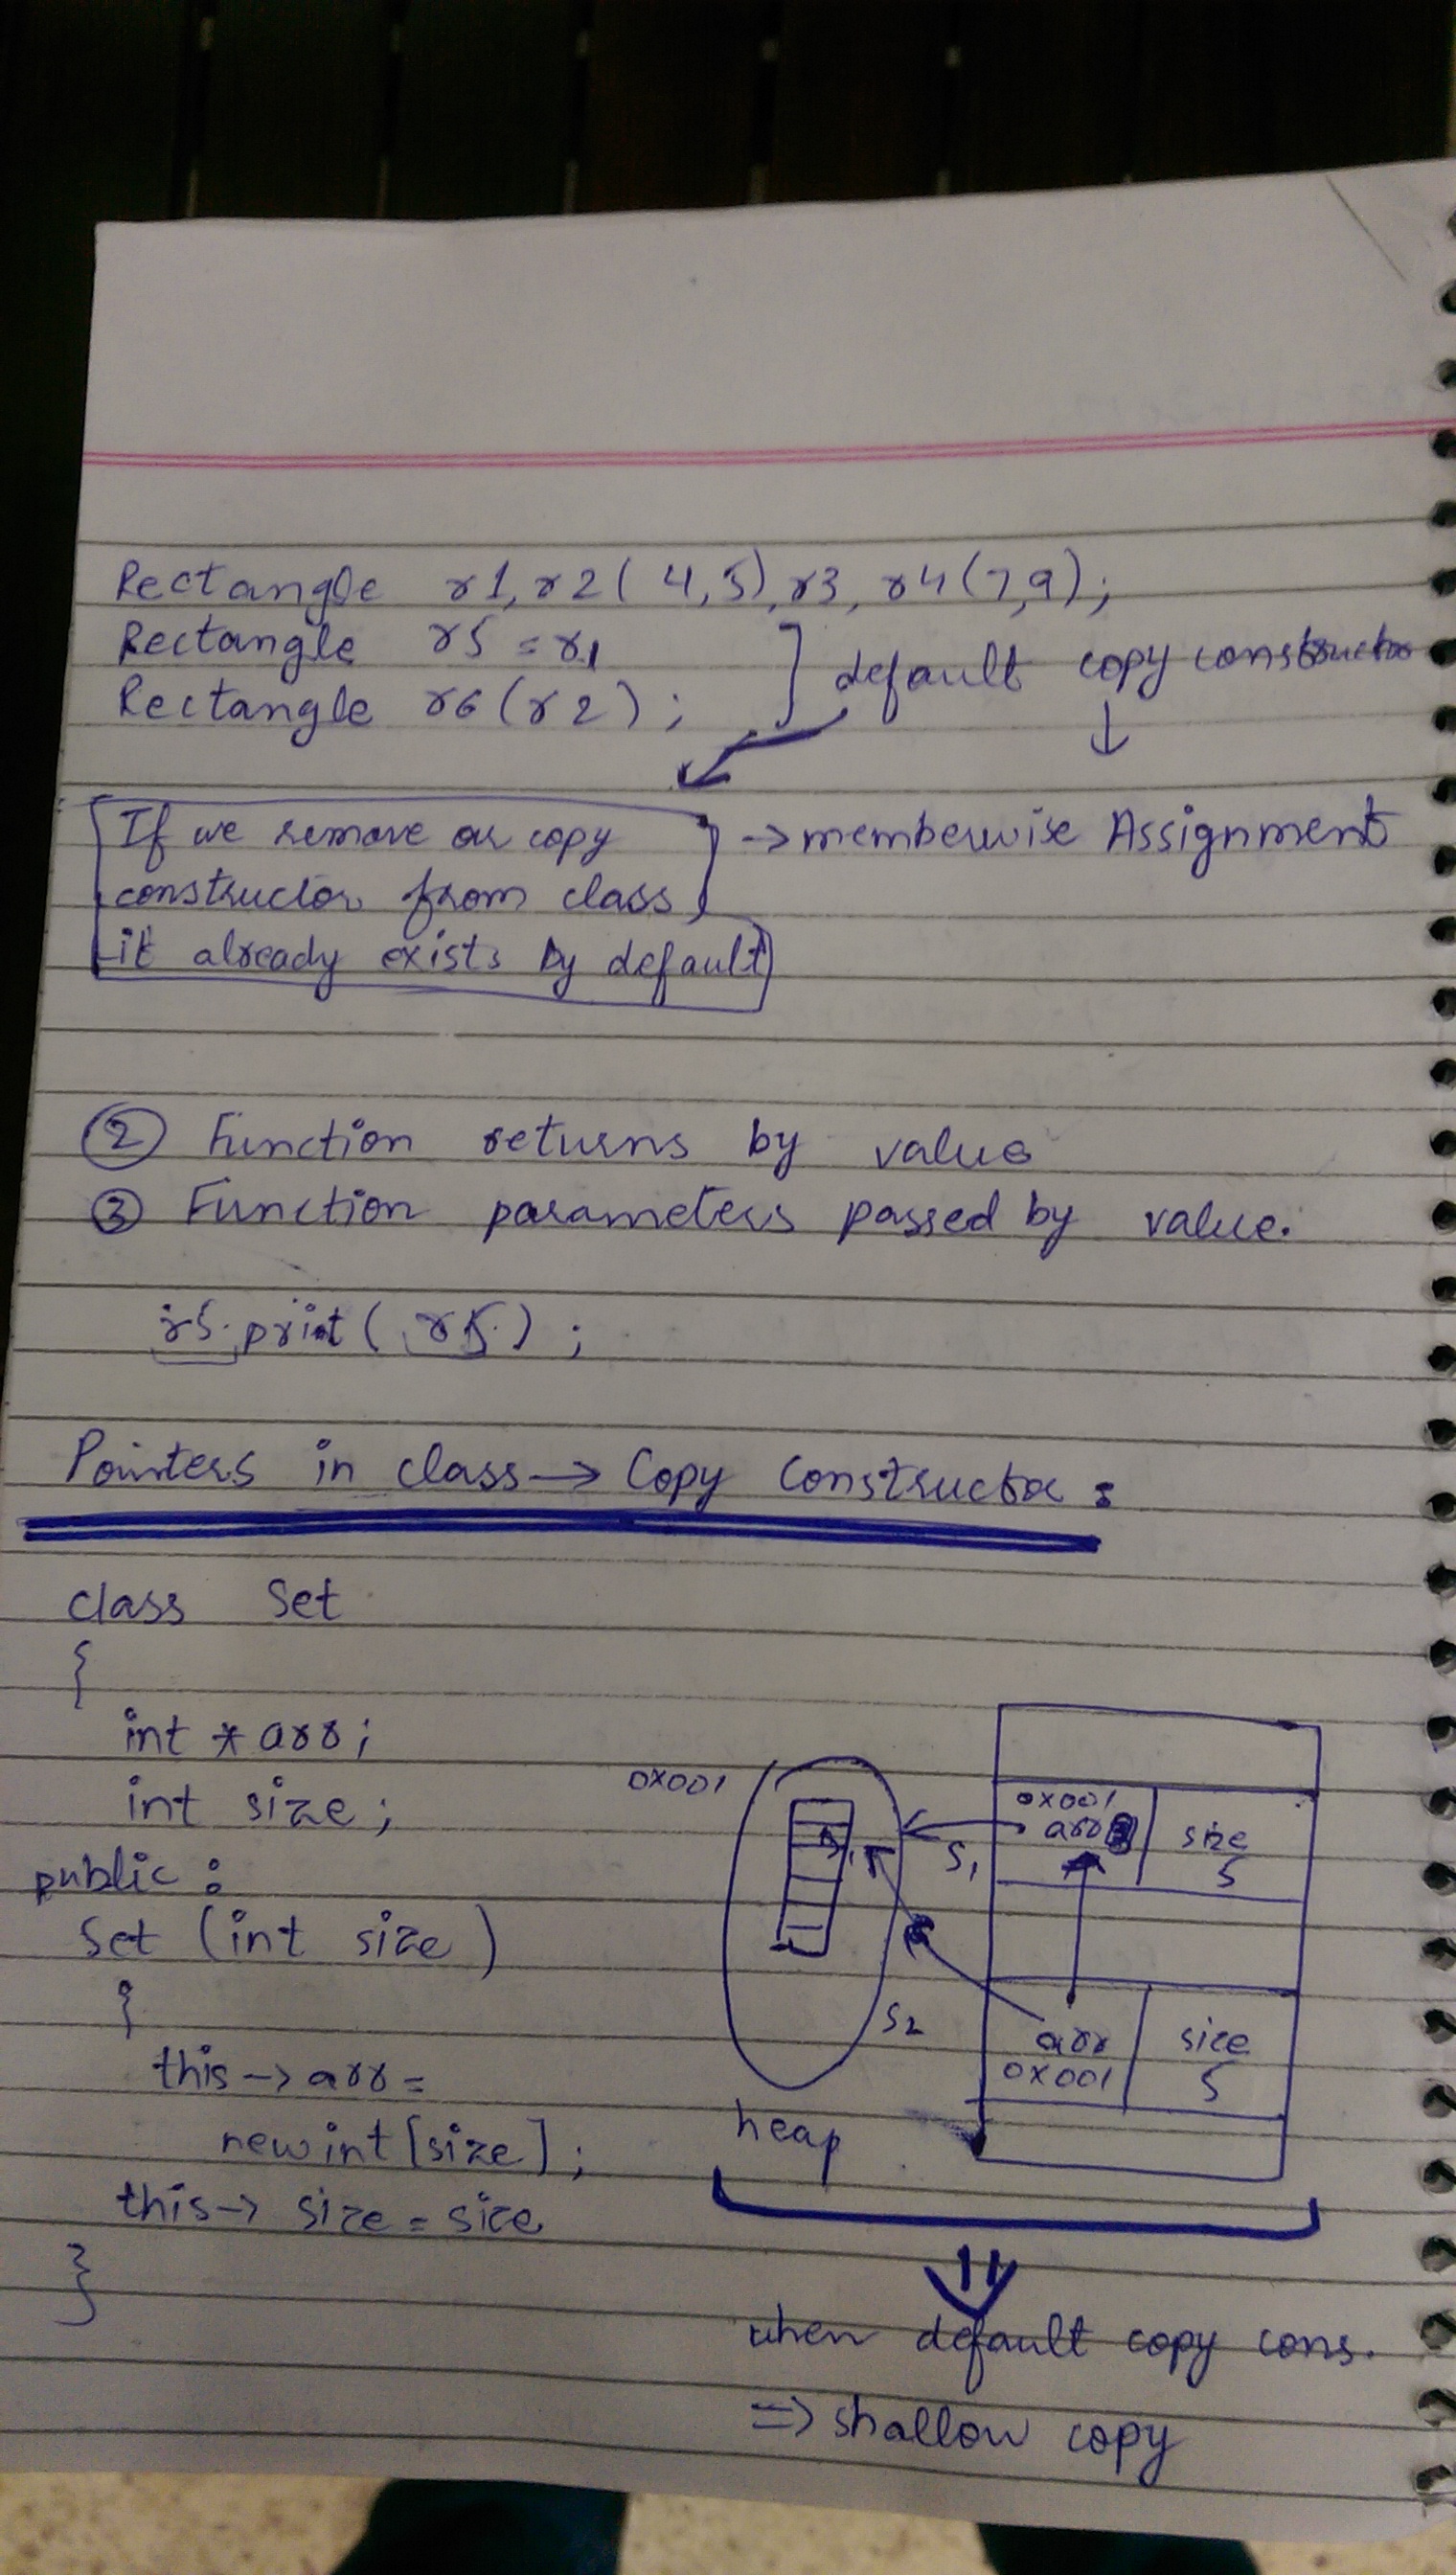 Rectangle r1, r2( 4,5), r3, r4(7,9);
Rectangle r5 = r1
Rectangle r6 (r2) ;
] default copy constructor
↓
If we remove our copy
constructor from class
it already exists by default
→ memberwise Assignment
② Function returns by value
③ Function parameters passed by value.
r5.print( r5 ) ;
Pointers in class → Copy Constructor :
class Set
{
int * arr;
int size;
public :
Set (int size)
{
this → arr =
new int [size] ;
this → size = size
}
0x001
S1
0x001
arr
size
5
S2
arr
0x001
size
5
heap
when default copy cons.
⇒ shallow copy